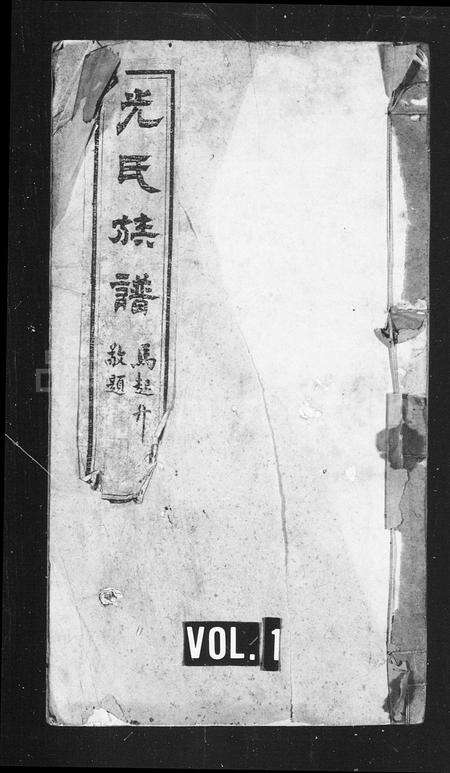 光氏族譜
馬起升
敬題
VOL. 1